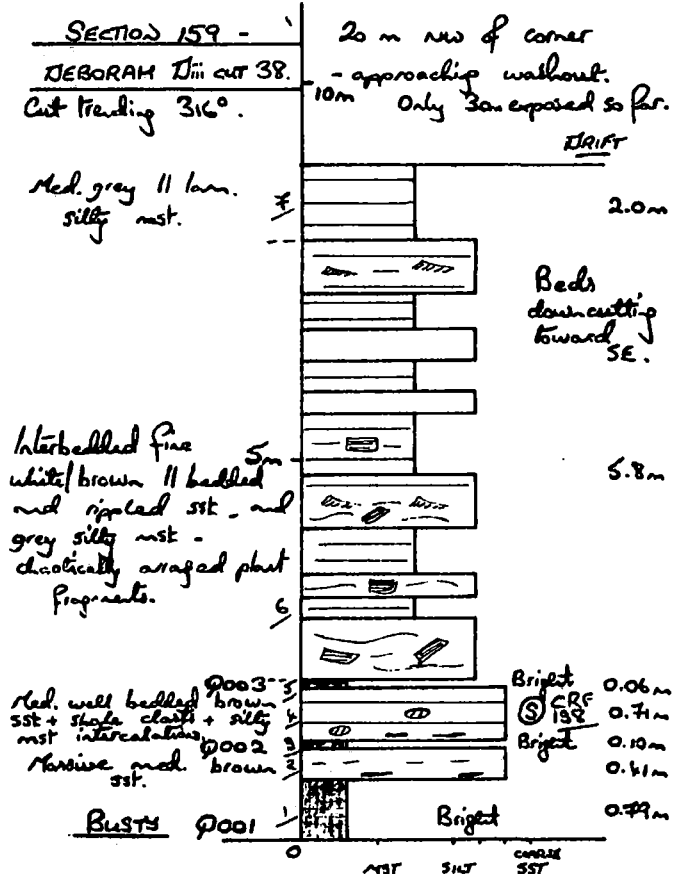 SECTION 159 -
DEBORAH Diii CUT 38.
Cut trending 316°.
20 m NW of corner
- approaching washout.
Only 3m exposed so far.
10m
DRIFT
Med. grey // lam.
silty mst.
7
2.0m
Beds
downcutting
toward
SE.
Interbedded fine
white/brown // bedded
and rippled sst - and
grey silty mst -
chaotically arranged plant
fragments.
5m
5.8m
6
Q003
5
Bright
0.06m
Med. well bedded brown
sst + shale clasts + silty
mst intercalations.
4
S
CRF
198
0.71m
Q002
3
Bright
0.10m
Massive med. brown
sst.
2
0.41m
BUSTY
Q001
1
Bright
0.79m
0
MST
SILT
COARSE
SST